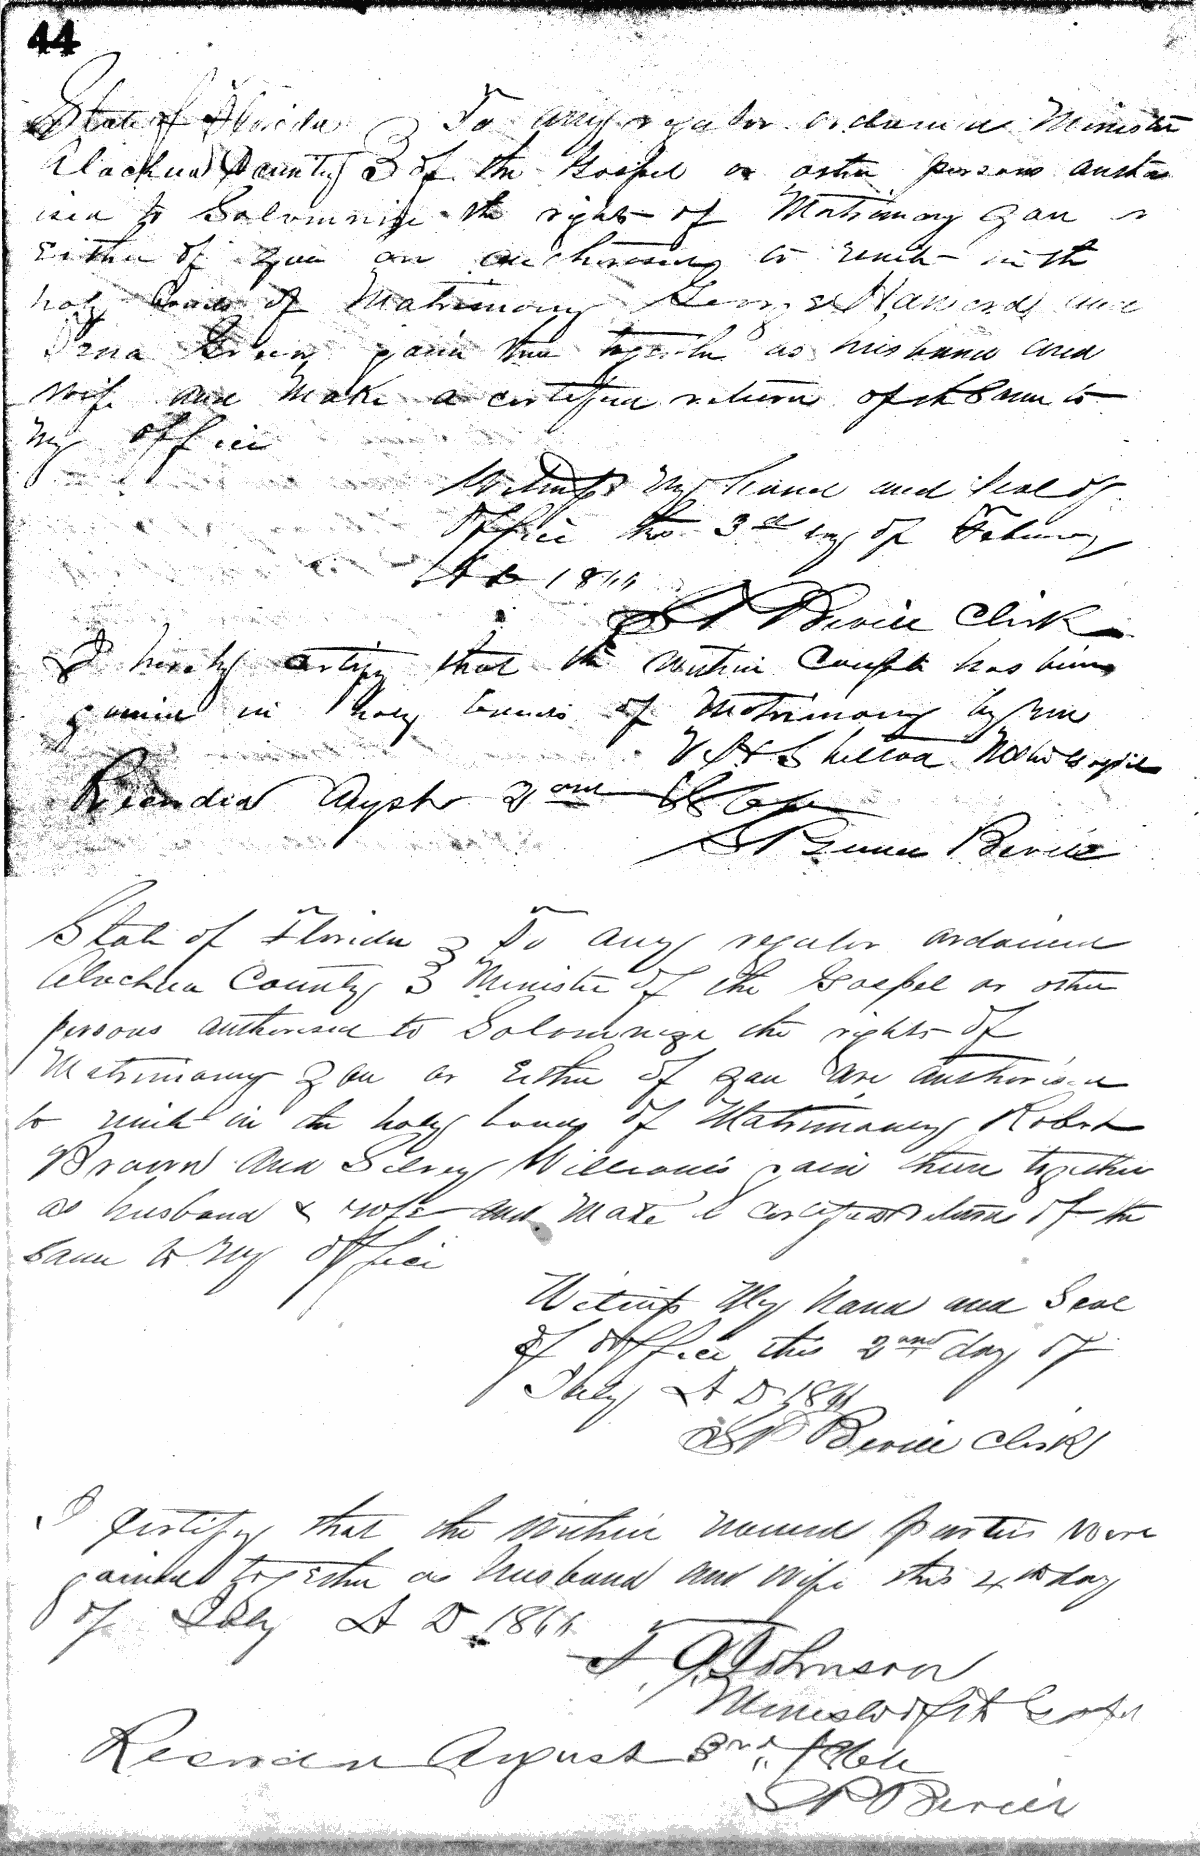 44
State of Florida To any regular ordained Minister
Alachua County 3 of the Gospel or other persons autho
ised to Solomnize the rights of Matrimony you or
Either of you are authorised to unite in the
holy bonds of Matrimony George and
Green join them together as husband and
wife and Make a certified return of the Same to
My office
Witness My hand and seal of
office this 3rd day of February
A D 1866
S P Bevill Clerk
I hereby certify that the within Couple has being
joined in holy bonds of Matrimony by me
Shelton
Recorded August 2ond 1866
Bevill
State of Florida 3 To any regular ordained
Alachua County 3 Minister of the Gospel or other
persons authorised to Solomnize the rights of
Matrimony you or Either of you are authorised
to unite in the holy bonds of Matrimony Robert
Brown and Silvey Williams join them together
as husband & wife and make a certified return of the
same to My office
Witness My hand and Seal
of office this 2ond day of
July A D 1866
S P Bevill Clerk
I certify that the within named parties were
joined together as husband and wife this 4th day
of July A D 1866
Johnson
Minister of the Gospel
Recorded August 3rd 1866
S P Bevill